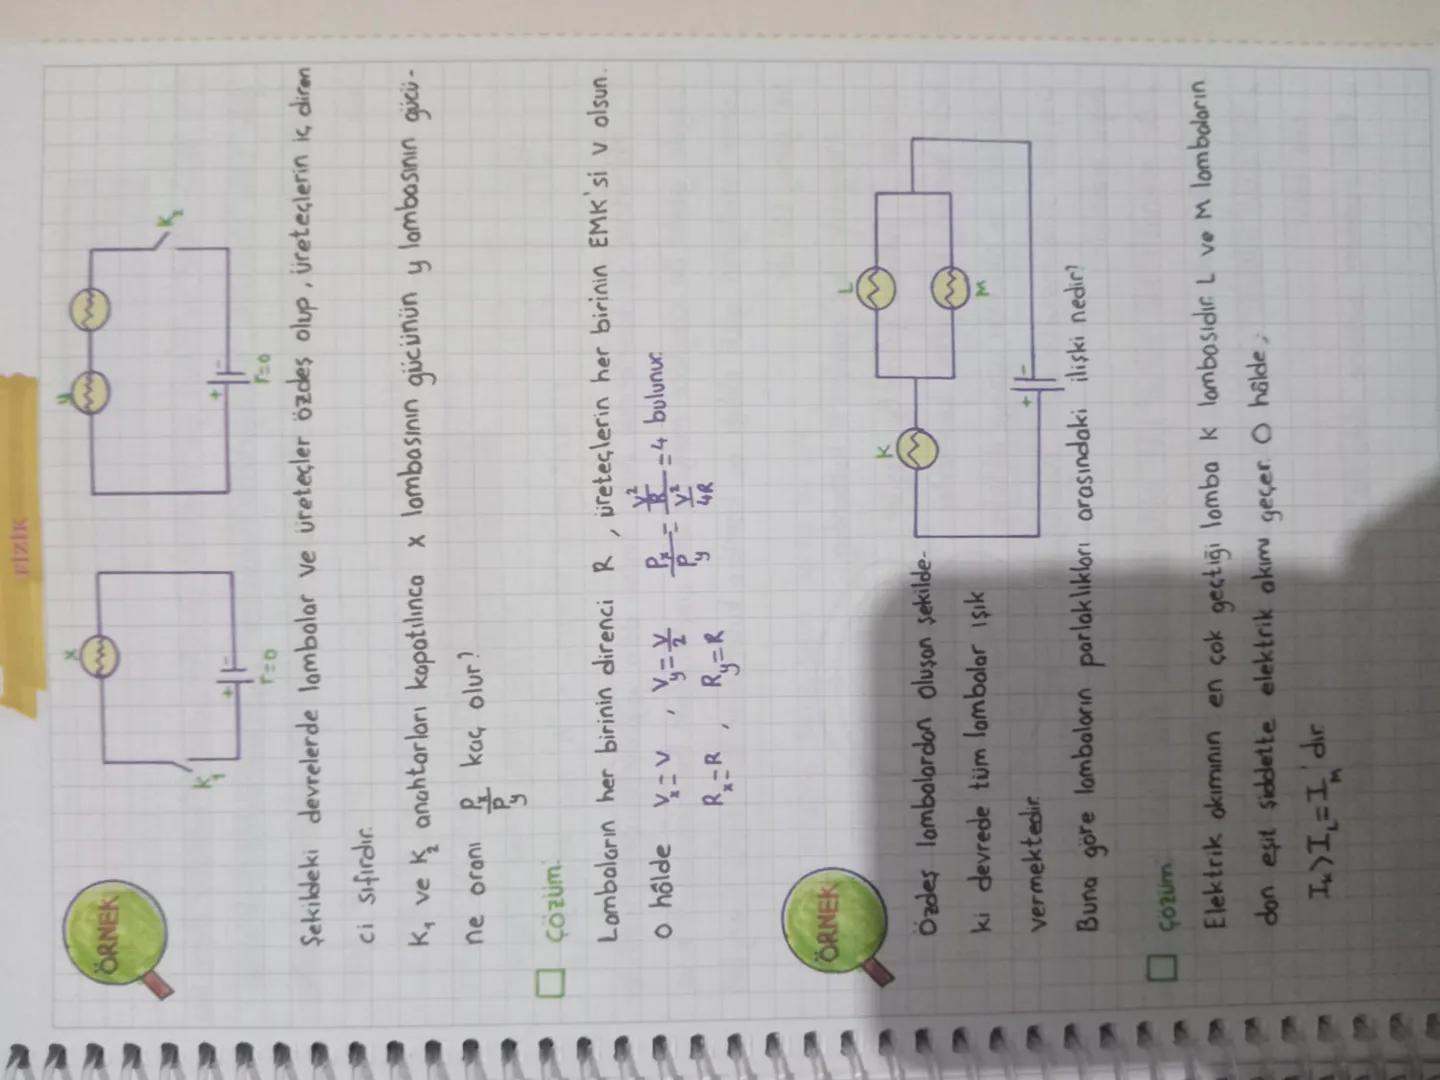 FİZİK
ÖRNEK
x
K₁
+ -
r=0
y
K₂
+ -
r=0
Şekildeki devrelerde lambalar ve üreteçler özdeş olup, üreteçlerin iç diren
ci sıfırdır.
K₁ ve K₂ anahtarları kapatılınca x lambasının gücünün y lambasının gücü-
ne oranı Px/Py kaç olur?
Çözüm:
Lambaların her birinin direnci R, üreteçlerin her birinin EMK'si V olsun.
O hâlde Vx=V, Vy=V/2 Px/Py = (V²/R)/(V²/4R) = 4 bulunur.
Rx=R, Ry=R
ÖRNEK
Özdeş lambalardan oluşan şekilde-
ki devrede tüm lambalar ışık
vermektedir.
K
L
M
+ -
Buna göre lambaların parlaklıkları arasındaki ilişki nedir?
Çözüm
Elektrik akımının en çok geçtiği lamba K lambasıdır. L ve M lambaların
dan eşit şiddette elektrik akımı geçer. O hâlde;
Iₖ>I_L=I_M'dir